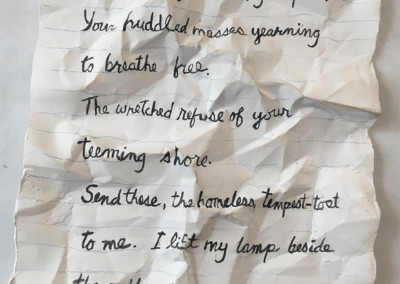 Your huddled masses yearning
to breathe free.
The wretched refuse of your
teeming shore.
Send these, the homeless, tempest-tost
to me. I lift my lamp beside
the